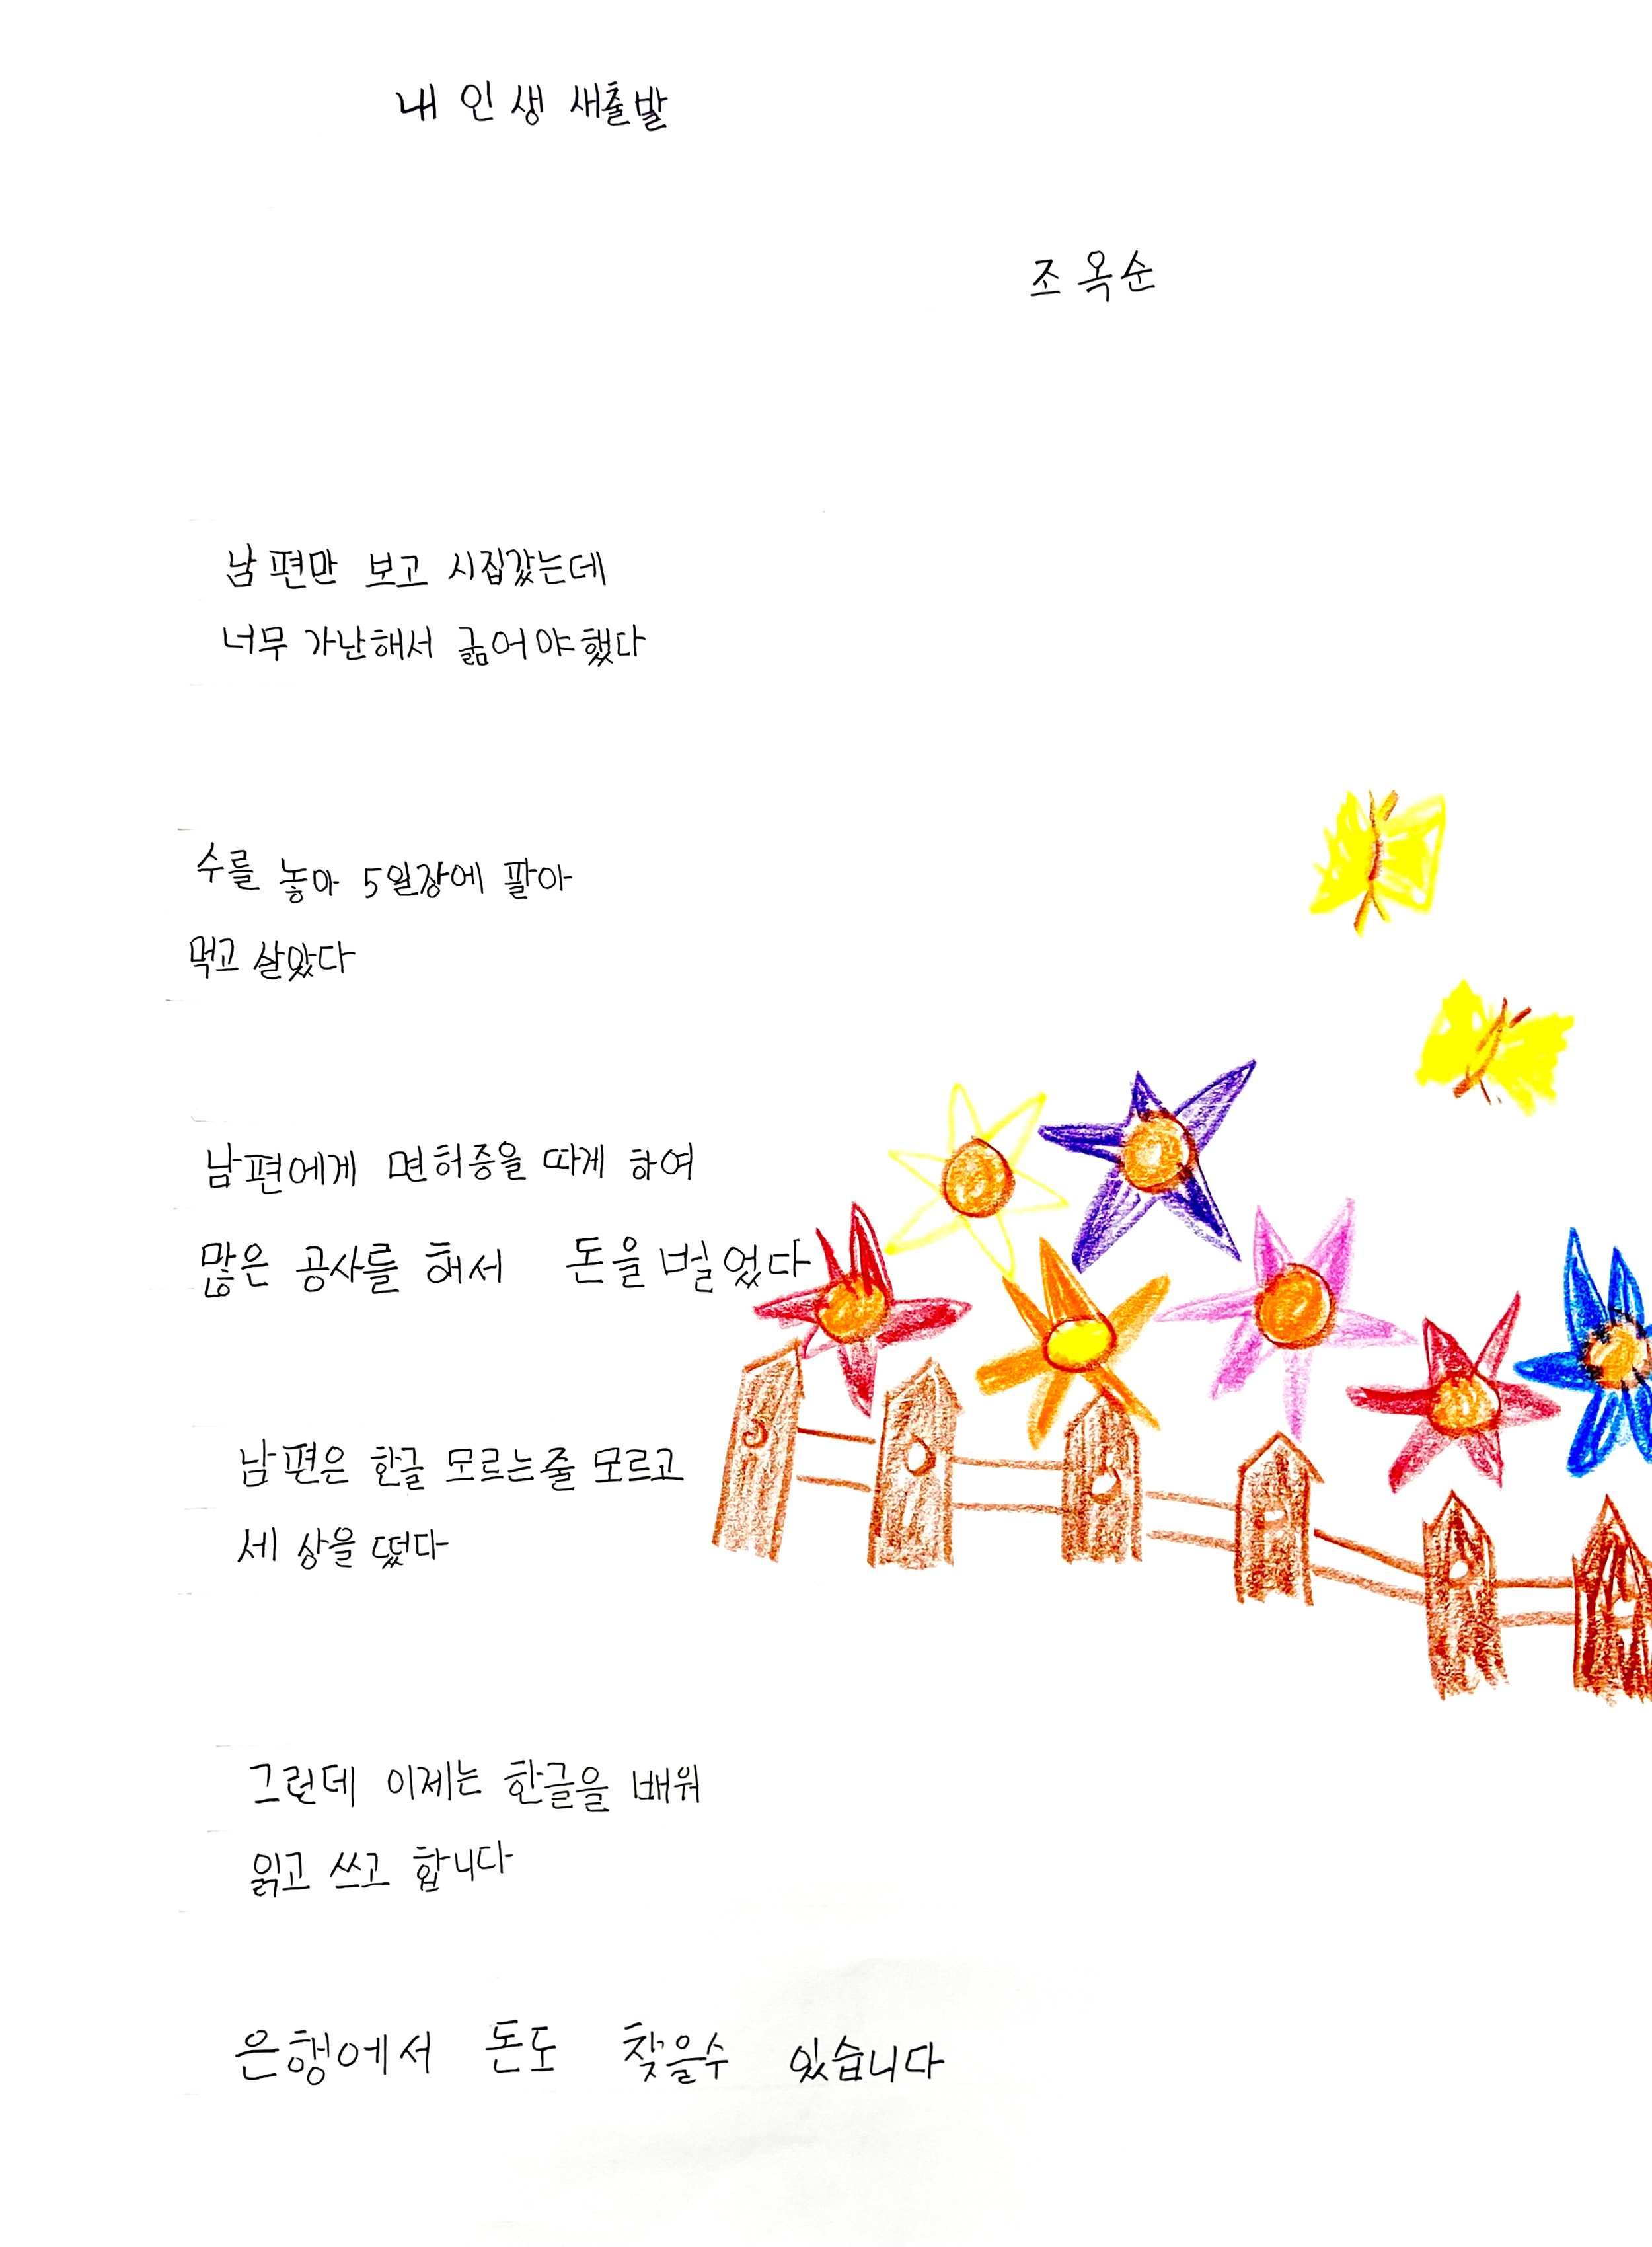 내 인생 새출발
조옥순
남편만 보고 시집갔는데
너무 가난해서 굶어야했다
수를 놓아 5일장에 팔아
먹고 살았다
남편에게 면허증을 따게 하여
많은 공사를 해서 돈을 벌었다
남편은 한글 모르는줄 모르고
세상을 떴다
그런데 이제는 한글을 배워
읽고 쓰고 합니다
은행에서 돈도 찾을수 있습니다